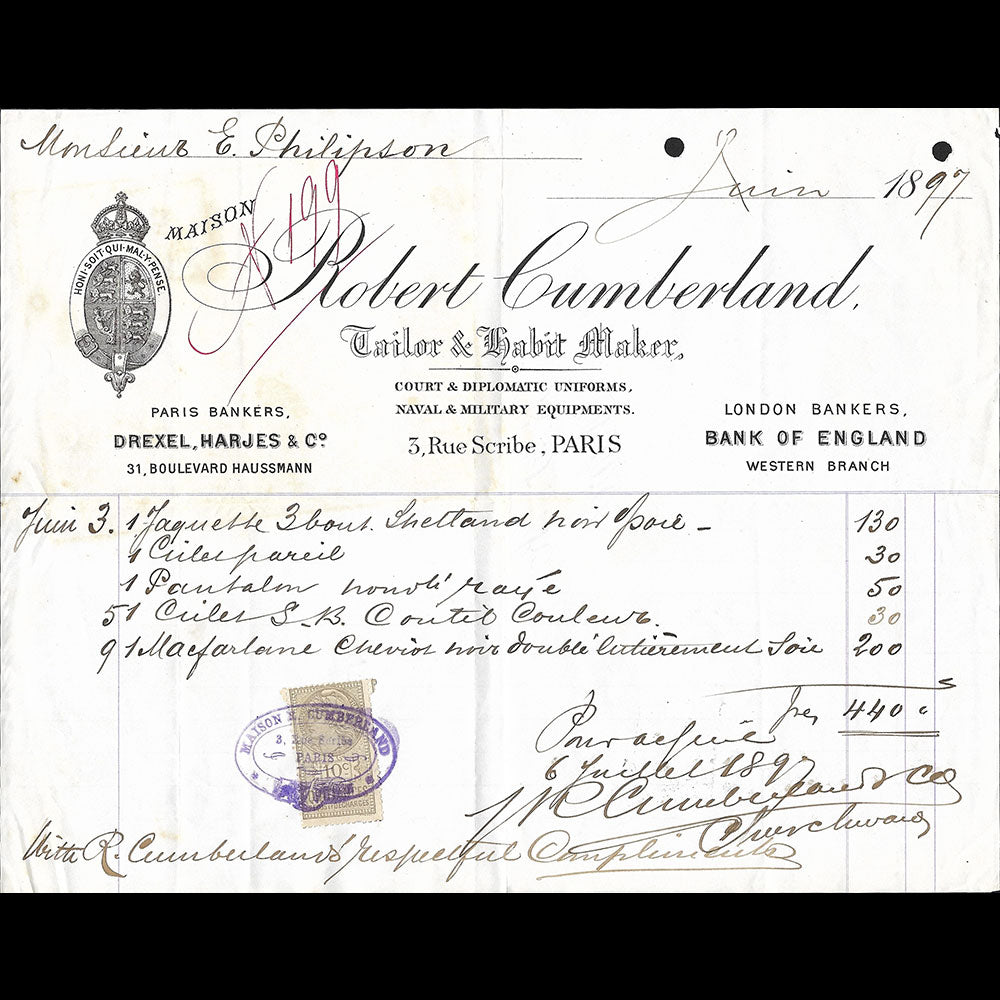 Monsieur E. Philipson
Juin 1897
MAISON
N 199
Robert Cumberland,
HONI·SOIT·QUI·MAL·Y·PENSE
Tailor & Habit Maker,
COURT & DIPLOMATIC UNIFORMS,
NAVAL & MILITARY EQUIPMENTS.
3, Rue Scribe, PARIS
PARIS BANKERS,
DREXEL, HARJES & Cº
31, BOULEVARD HAUSSMANN
LONDON BANKERS,
BANK OF ENGLAND
WESTERN BRANCH
Juin 3. 1 Jaquette 3 bout. Shetland noir Soie - 130
1 Gilet pareil 30
1 Pantalon nouvté rayé 50
5 1 Gilet S.B. Coutil Couleur. 30
9 1 Macfarlane Cheviot noir doublé Entièrement Soie 200
frs 440
Pour acquit
6 Juillet 1897
R Cumberland & Co
MAISON R. CUMBERLAND
3, Rue Scribe
PARIS
10c
With R. Cumberland's respectful Compliments